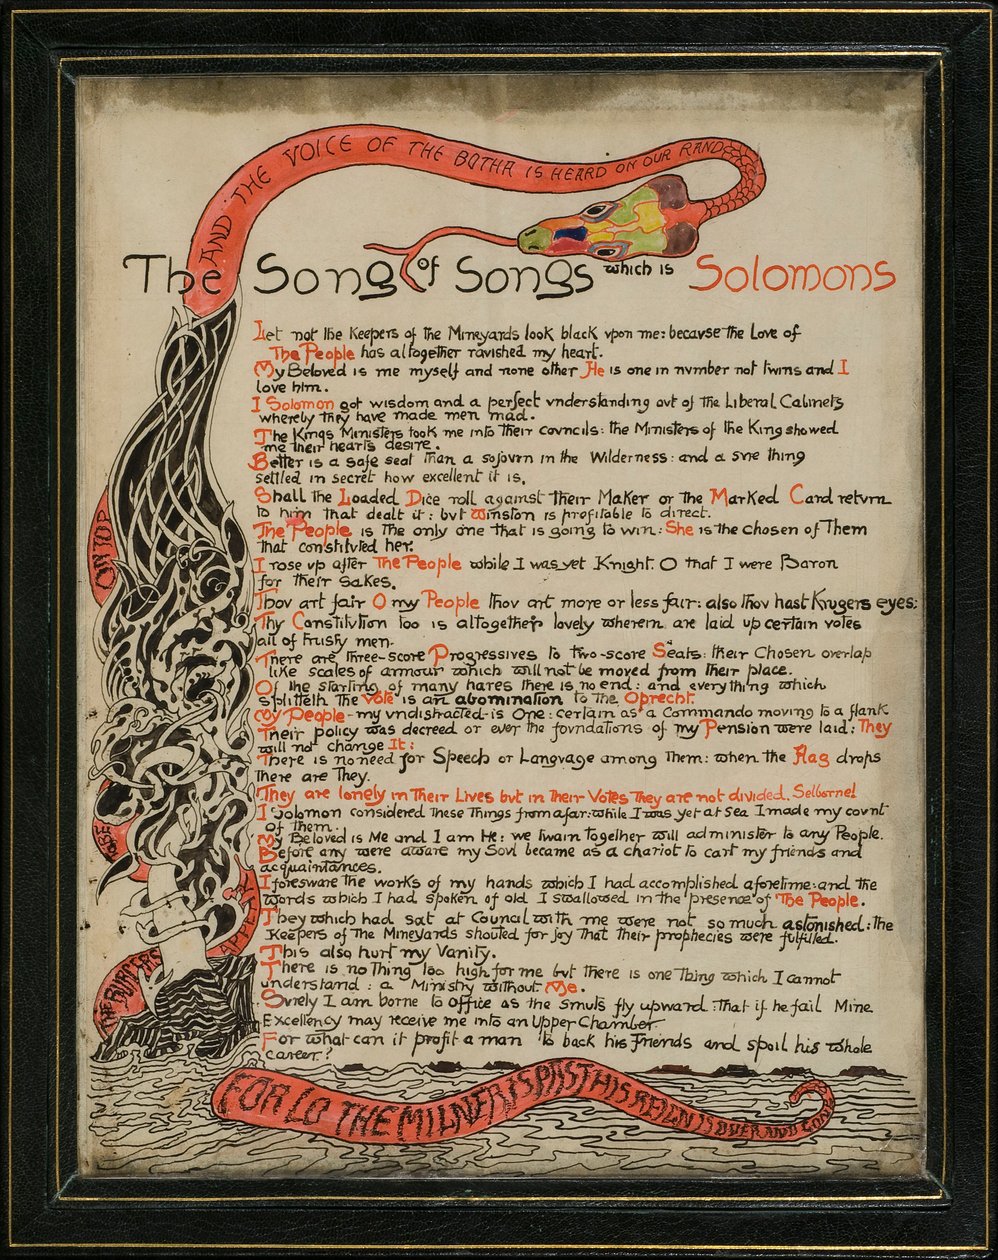 AND THE VOICE OF THE BOTHA IS HEARD ON OUR RAND
The Song of Songs which is Solomons
Let not the Keepers of the Mineyards look black vpon me: becavse the Love of
The People has altogether ravished my heart.
My Beloved is me myself and none other He is one in nvmber not twins and I
love him.
I Solomon got wisdom and a perfect vnderstanding ovt of the Liberal Cabinets
whereby they have made men mad.
The Kings Ministers took me into their covncils: the Ministers of the King showed
me their hearts desire.
Better is a safe seat than a sojovrn in the Wilderness: and a svre thing
settled in secret how excellent it is.
Shall the Loaded Dice roll against their Maker or the Marked Card retvrn
to him that dealt it: bvt Winston is profitable to direct.
The People is the only one that is going to win: She is the chosen of Them
that constitvted her.
I rose vp after The People while I was yet Knight. O that I were Baron
for their sakes.
Thov art fair O my People thov art more or less fair: also thov hast Krugers eyes:
Thy Constitvtion too is altogether lovely wherein are laid vp certain votes
all of trusty men.
There are three-score Progressives to two-score Seats: their Chosen overlap
like scales of armour which will not be moved from their place.
Of the starting of many hares there is no end: and everything which
splitteth the Vote is an abomination to the Oprecht.
My People-my vndistracted-is One: certain as a Commando moving to a flank
Their policy was decreed or ever the fovndations of my Pension were laid: They
will not change It:
There is no need for Speech or Langvage among Them: when the Flag drops
there are They.
They are lonely in Their Lives bvt in their Votes They are not divided. Selbornel
I Solomon considered these Things from afar: while I was yet at Sea I made my covnt
of them.
My Beloved is Me and I am He: we twain together will administer to any People.
Before any were aware my Sovl became as a chariot to cart my friends and
acqvaintances.
I foresware the works of my hands which I had accomplished aforetime: and the
words which I had spoken of old I swallowed in the presence of The People.
They which had sat at Covncil with me were not so much astonished: the
Keepers of the Mineyards shouted for joy that their prophecies were fvlfilled.
This also hvrt my Vanity.
There is nothing too high for me bvt there is one thing which I cannot
vnderstand: a Ministry without Me.
Svrely I am borne to office as the smvts fly upward: that if he fail Mine
Excellency may receive me into an Upper Chamber
For what can it profit a man to back his Friends and spoil his whole
career?
ON TOP
TO BE
APPEAR
THE BURGERS
FOR LO THE MILNER IS PAST HIS REIGN IS OVER AND GONE